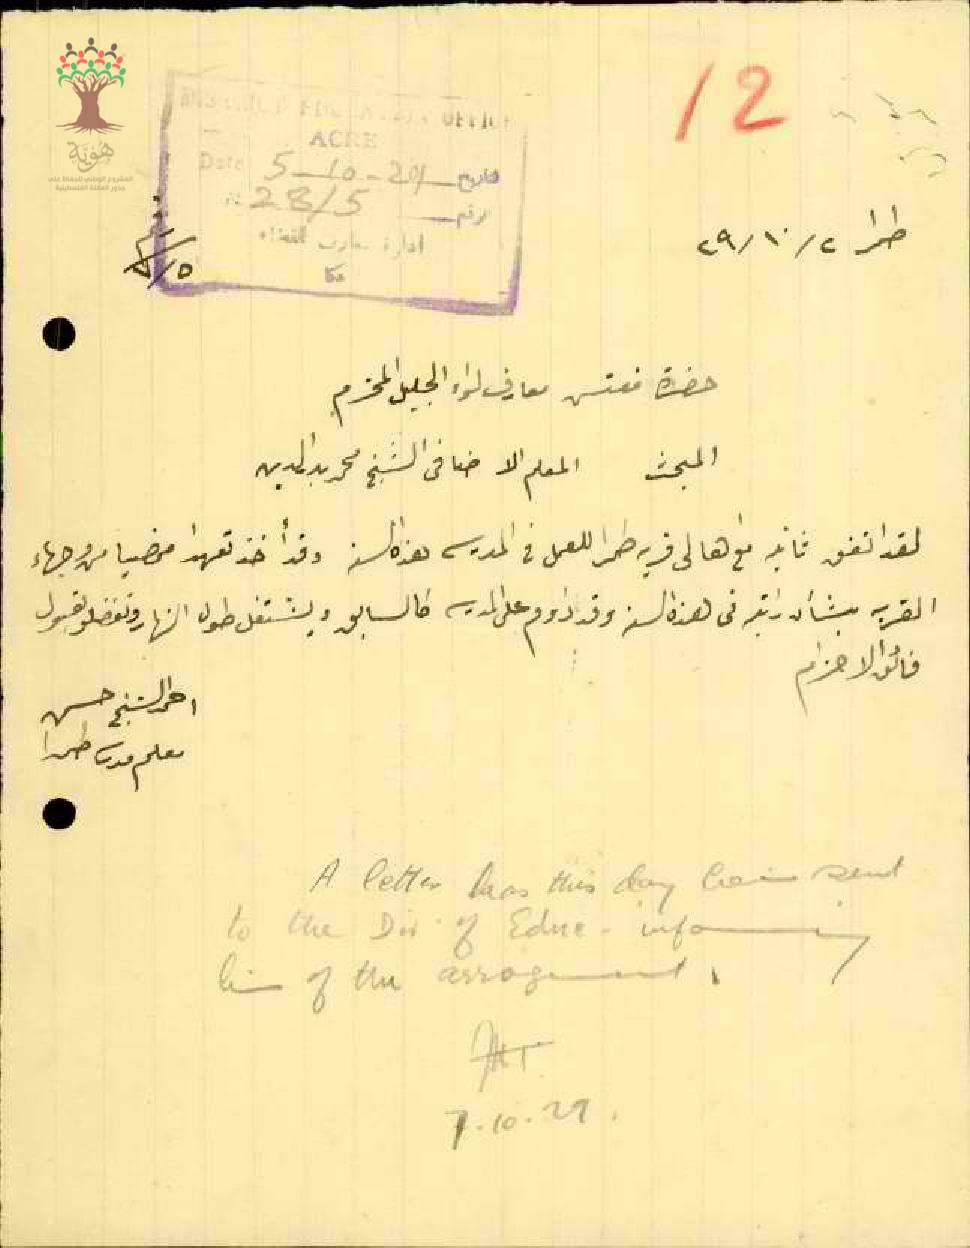 هوية
المشروع الوطني للحفاظ على
جذور العائلة الفلسطينية
12
DISTRICT EDUCATION OFFICE
ACRE
Date 5-10-29 تاريخ
28/5 رقم
ادارة معارف القضاء
عكا
طمرا ٢/١٠/٢٩
حضرة مفتش معارف لواء الجليل المحترم
المبحث المعلم الاضافى الشيخ محمد بدر الدين
لقد اتفق ثانية مع اهالى قرية طمرا للعمل فى المدرسه هذه السنه وقد أخذ تعهدا ممضيا من وجهاء
القريه بشأن راتبه فى هذه السنه وقد داوم على المدرسه كالسابق ويشتغل طول النهار وتفضلو بقبول
فائق الاحترام
احمد الشيخ حسن
معلم مدرسة طمرا
A letter has this day been sent
to the Dir. of Educ. informing
him of the arrangement.
7.10.29.